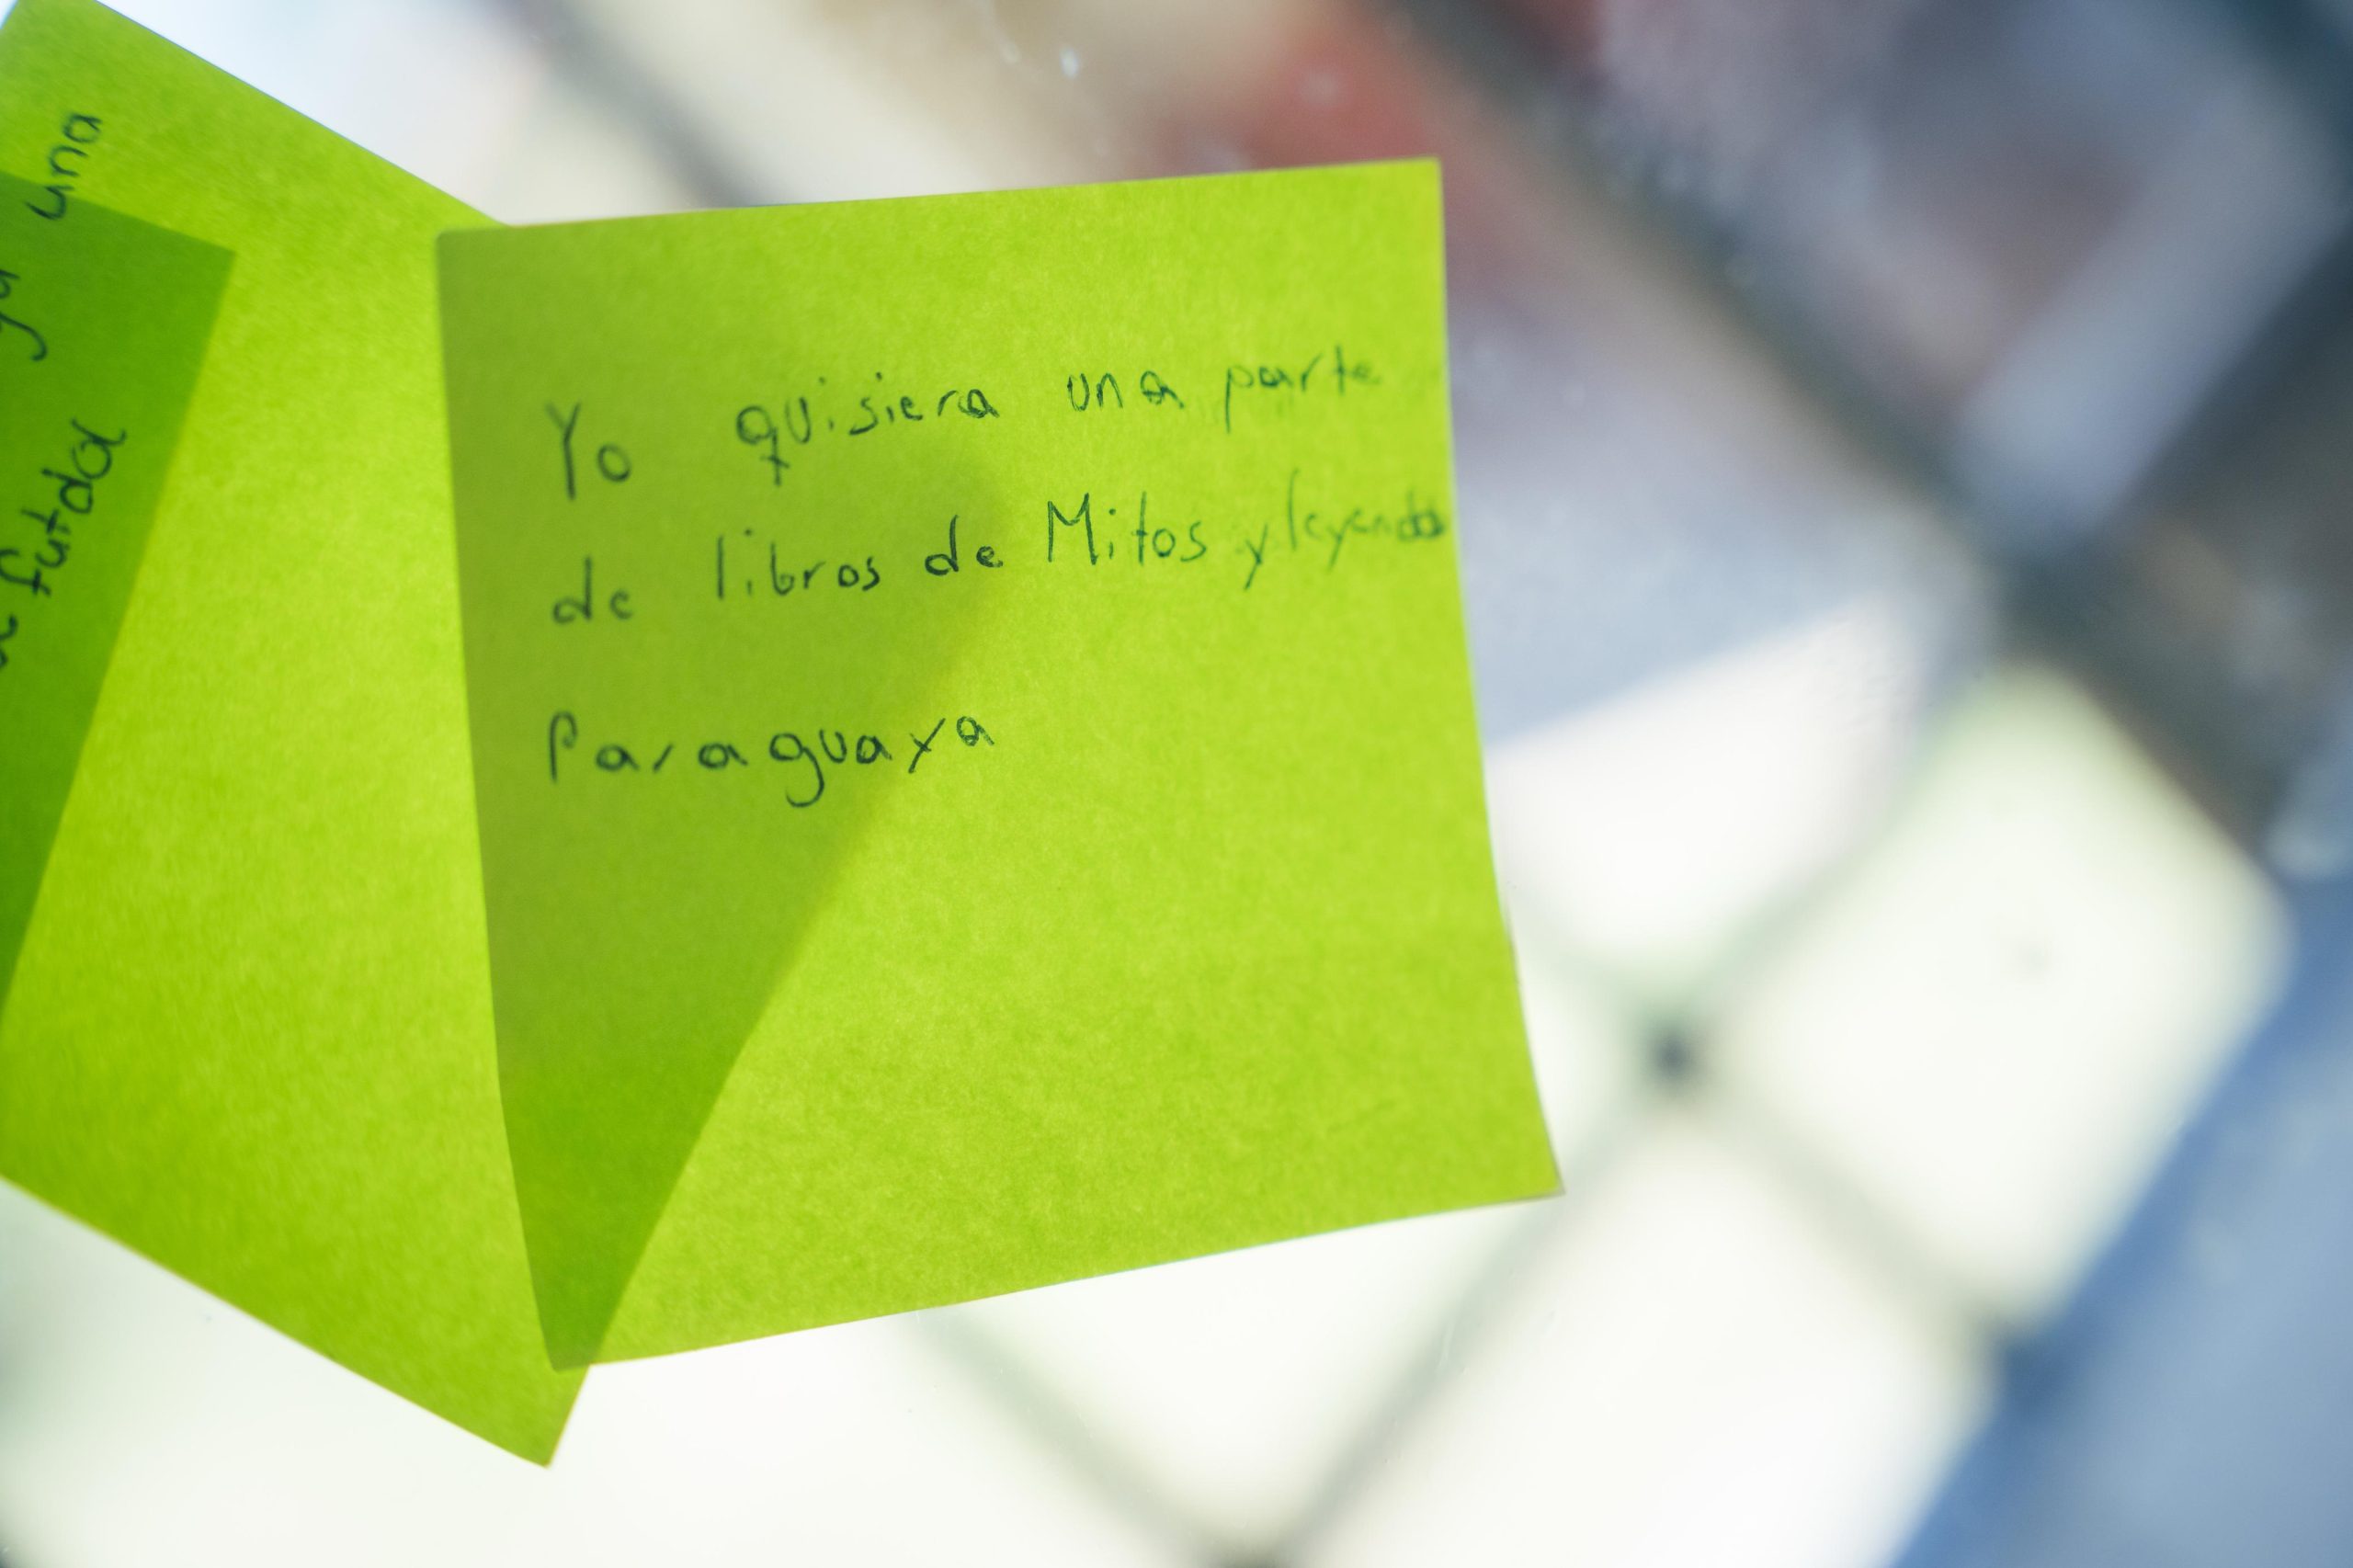 una
futda
Yo quisiera una parte
de libros de Mitos y leyenda
Paraguaya